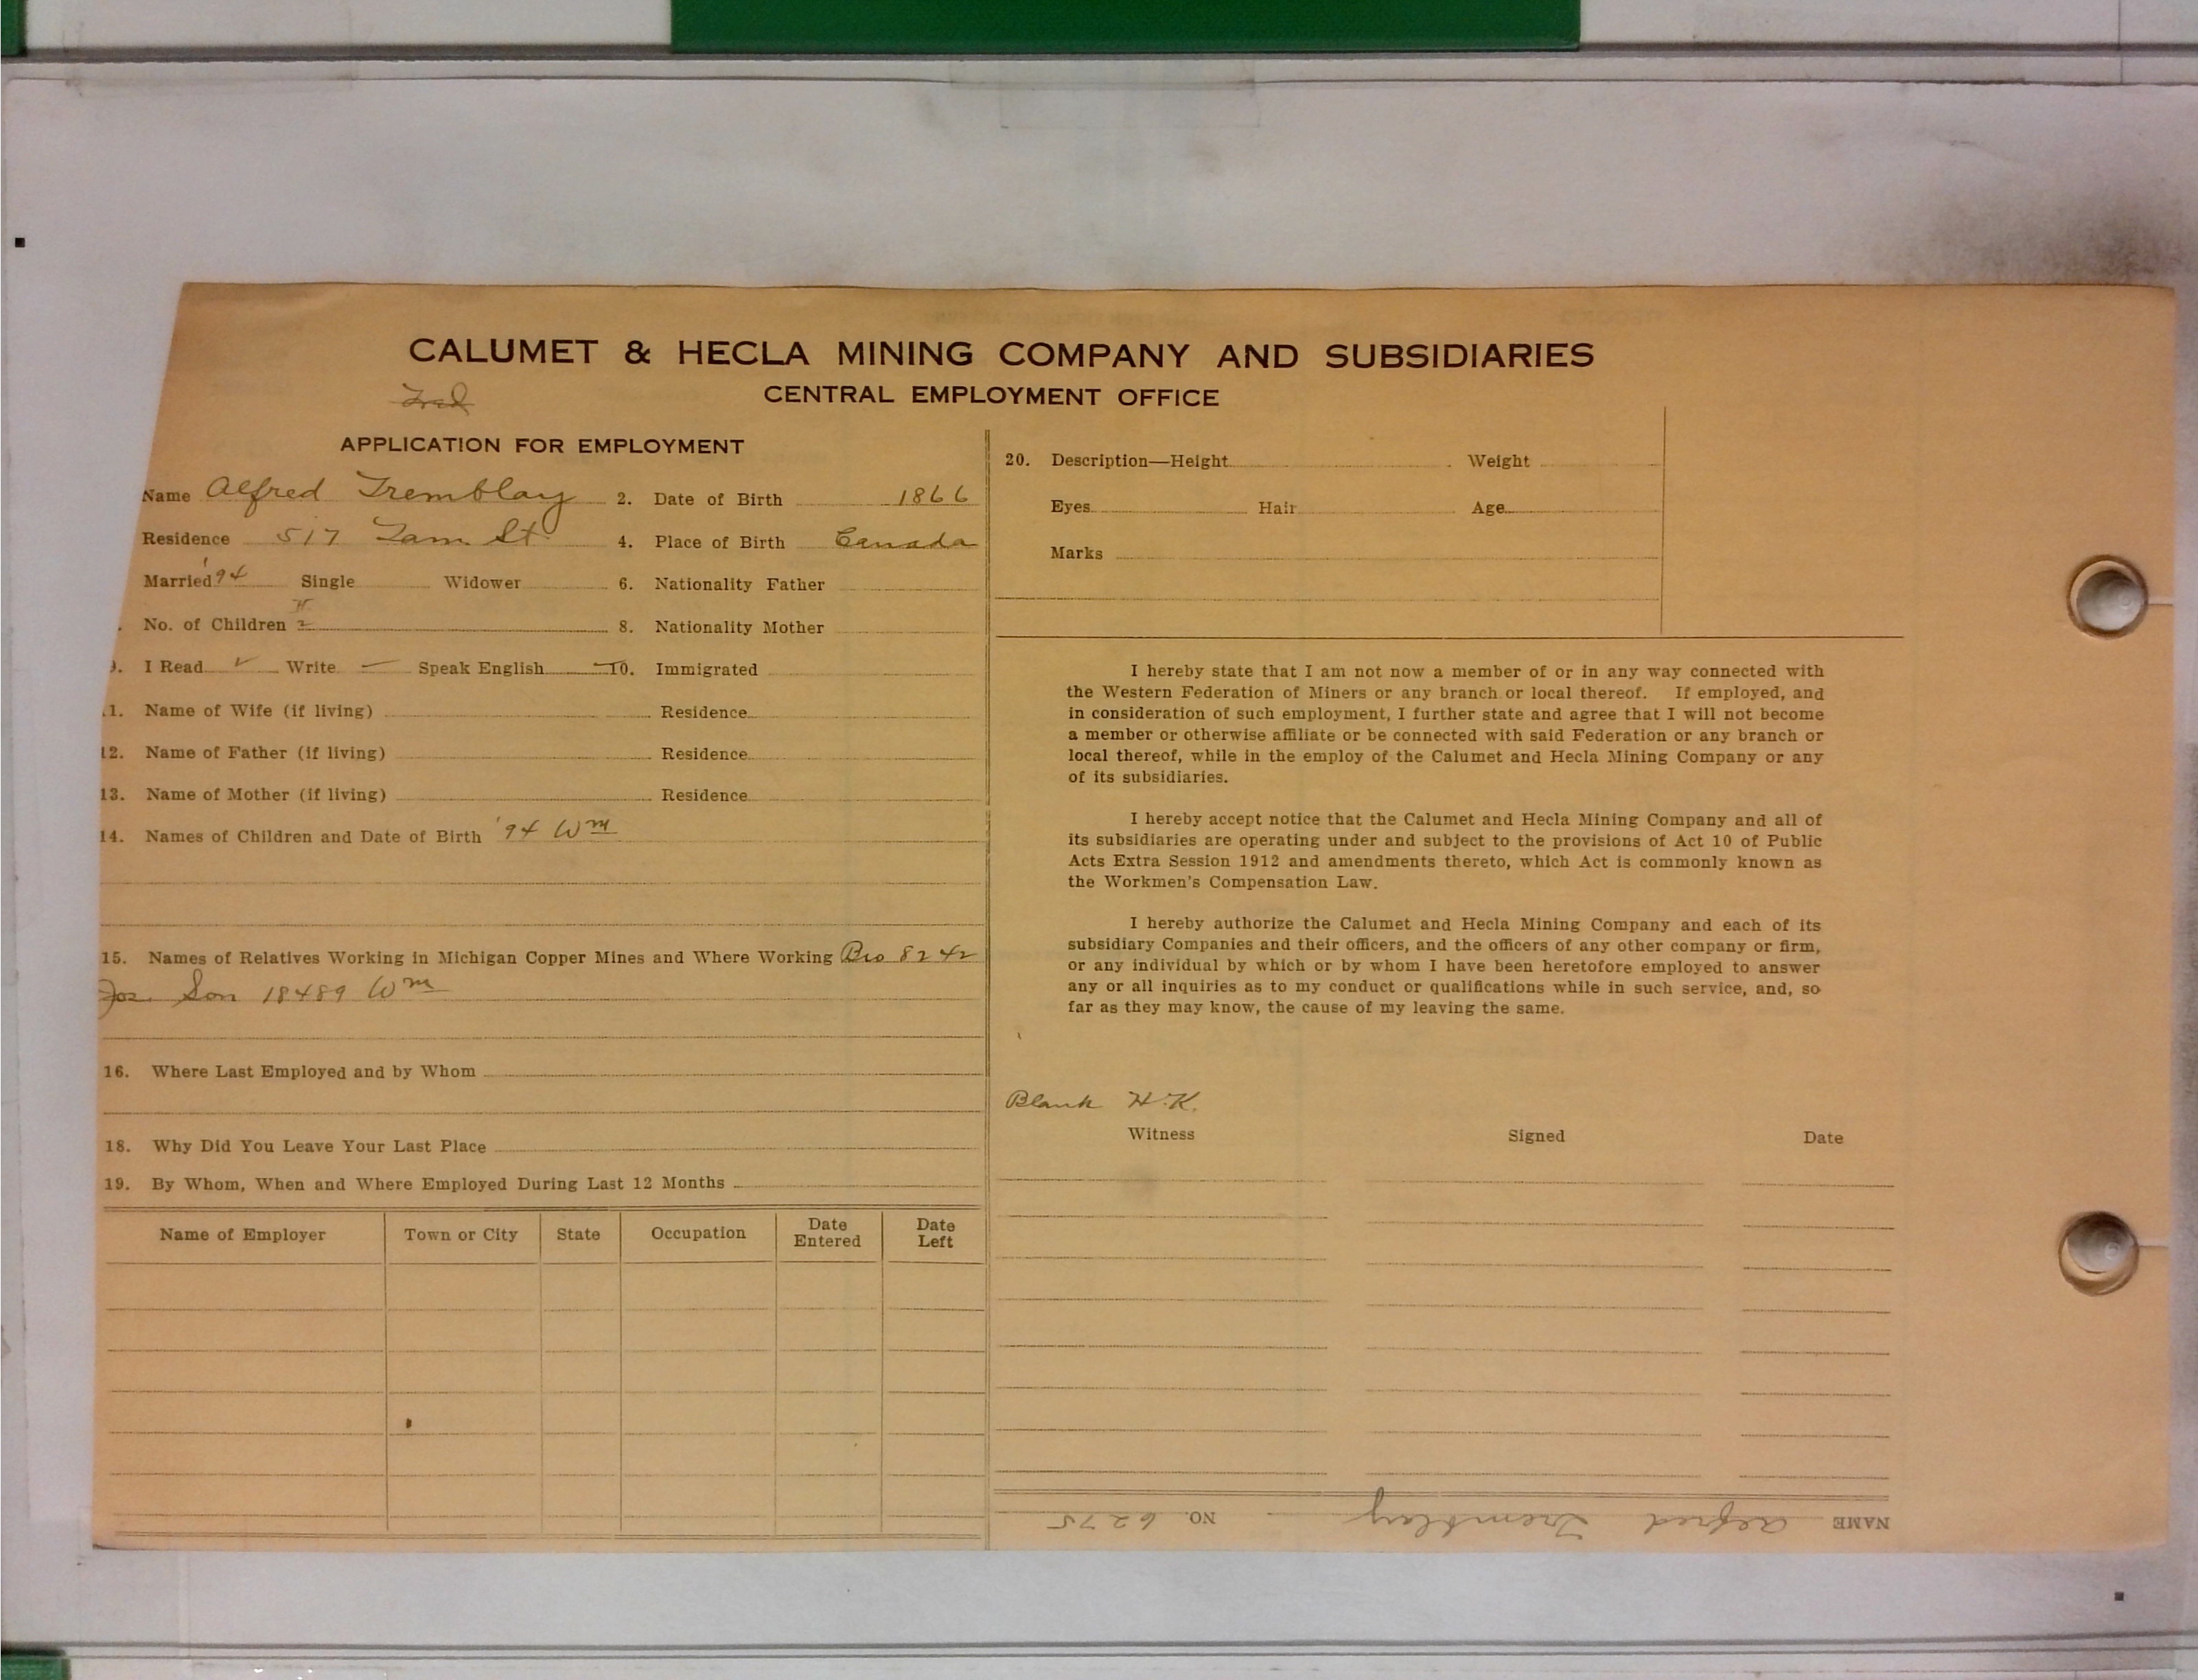 CALUMET & HECLA MINING COMPANY AND SUBSIDIARIES
Fred
CENTRAL EMPLOYMENT OFFICE
APPLICATION FOR EMPLOYMENT
Name Alfred Tremblay 2. Date of Birth 1866
Residence 517 Tam St 4. Place of Birth Canada
Married '94 Single Widower 6. Nationality Father
No. of Children 2 8. Nationality Mother
9. I Read ✓ Write — Speak English — 10. Immigrated
11. Name of Wife (if living) Residence
12. Name of Father (if living) Residence
13. Name of Mother (if living) Residence
14. Names of Children and Date of Birth '94 Wm
15. Names of Relatives Working in Michigan Copper Mines and Where Working Bro 8242
Jos. Son 18489 Wm
16. Where Last Employed and by Whom
18. Why Did You Leave Your Last Place
19. By Whom, When and Where Employed During Last 12 Months
Name of Employer Town or City State Occupation Date Entered Date Left
20. Description—Height Weight
Eyes Hair Age
Marks
I hereby state that I am not now a member of or in any way connected with
the Western Federation of Miners or any branch or local thereof. If employed, and
in consideration of such employment, I further state and agree that I will not become
a member or otherwise affiliate or be connected with said Federation or any branch or
local thereof, while in the employ of the Calumet and Hecla Mining Company or any
of its subsidiaries.
I hereby accept notice that the Calumet and Hecla Mining Company and all of
its subsidiaries are operating under and subject to the provisions of Act 10 of Public
Acts Extra Session 1912 and amendments thereto, which Act is commonly known as
the Workmen's Compensation Law.
I hereby authorize the Calumet and Hecla Mining Company and each of its
subsidiary Companies and their officers, and the officers of any other company or firm,
or any individual by which or by whom I have been heretofore employed to answer
any or all inquiries as to my conduct or qualifications while in such service, and, so
far as they may know, the cause of my leaving the same.
Blank H.K.
Witness Signed Date
NAME Alfred Tremblay NO. 6275